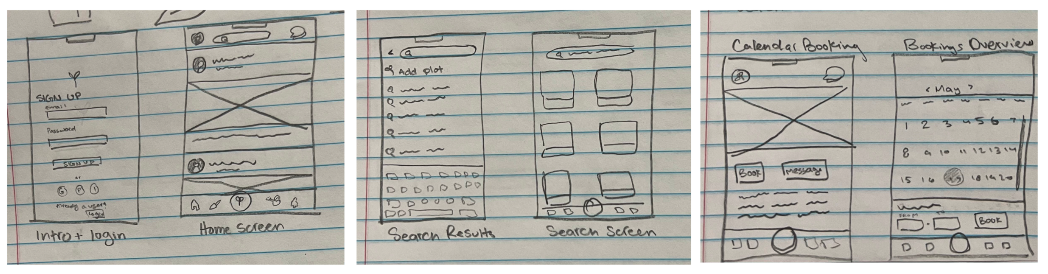 SIGN UP
email
Password
SIGN UP
or
already a user?
login
Intro + login
Home Screen
Add plot
Search Results
Search Screen
Calendar Booking
Book
Message
Bookings Overview
< May >
1 2 3 4 5 6 7
8 9 10 11 12 13 14
15 16 18 19 20
Book